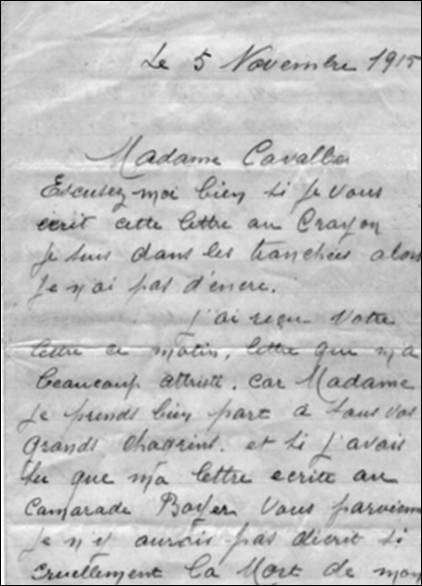 Le 5 Novembre 1915
Madame Cavallier
Escusez moi bien si je vous
écrit cette lettre au Crayon
je suis dans les tranchées alors
je n'ai pas d'encre.
j'ai reçu Votre
lettre ce matin, lettre que m'a
beaucoup attristé, car Madame
je prends bien part à tous vos
grands chagrins. et si j'avais
su que ma lettre ecrite au
Camarade Boyer Vous parvienne
je n'y aurais pas décrit si
cruellement la Mort de mon